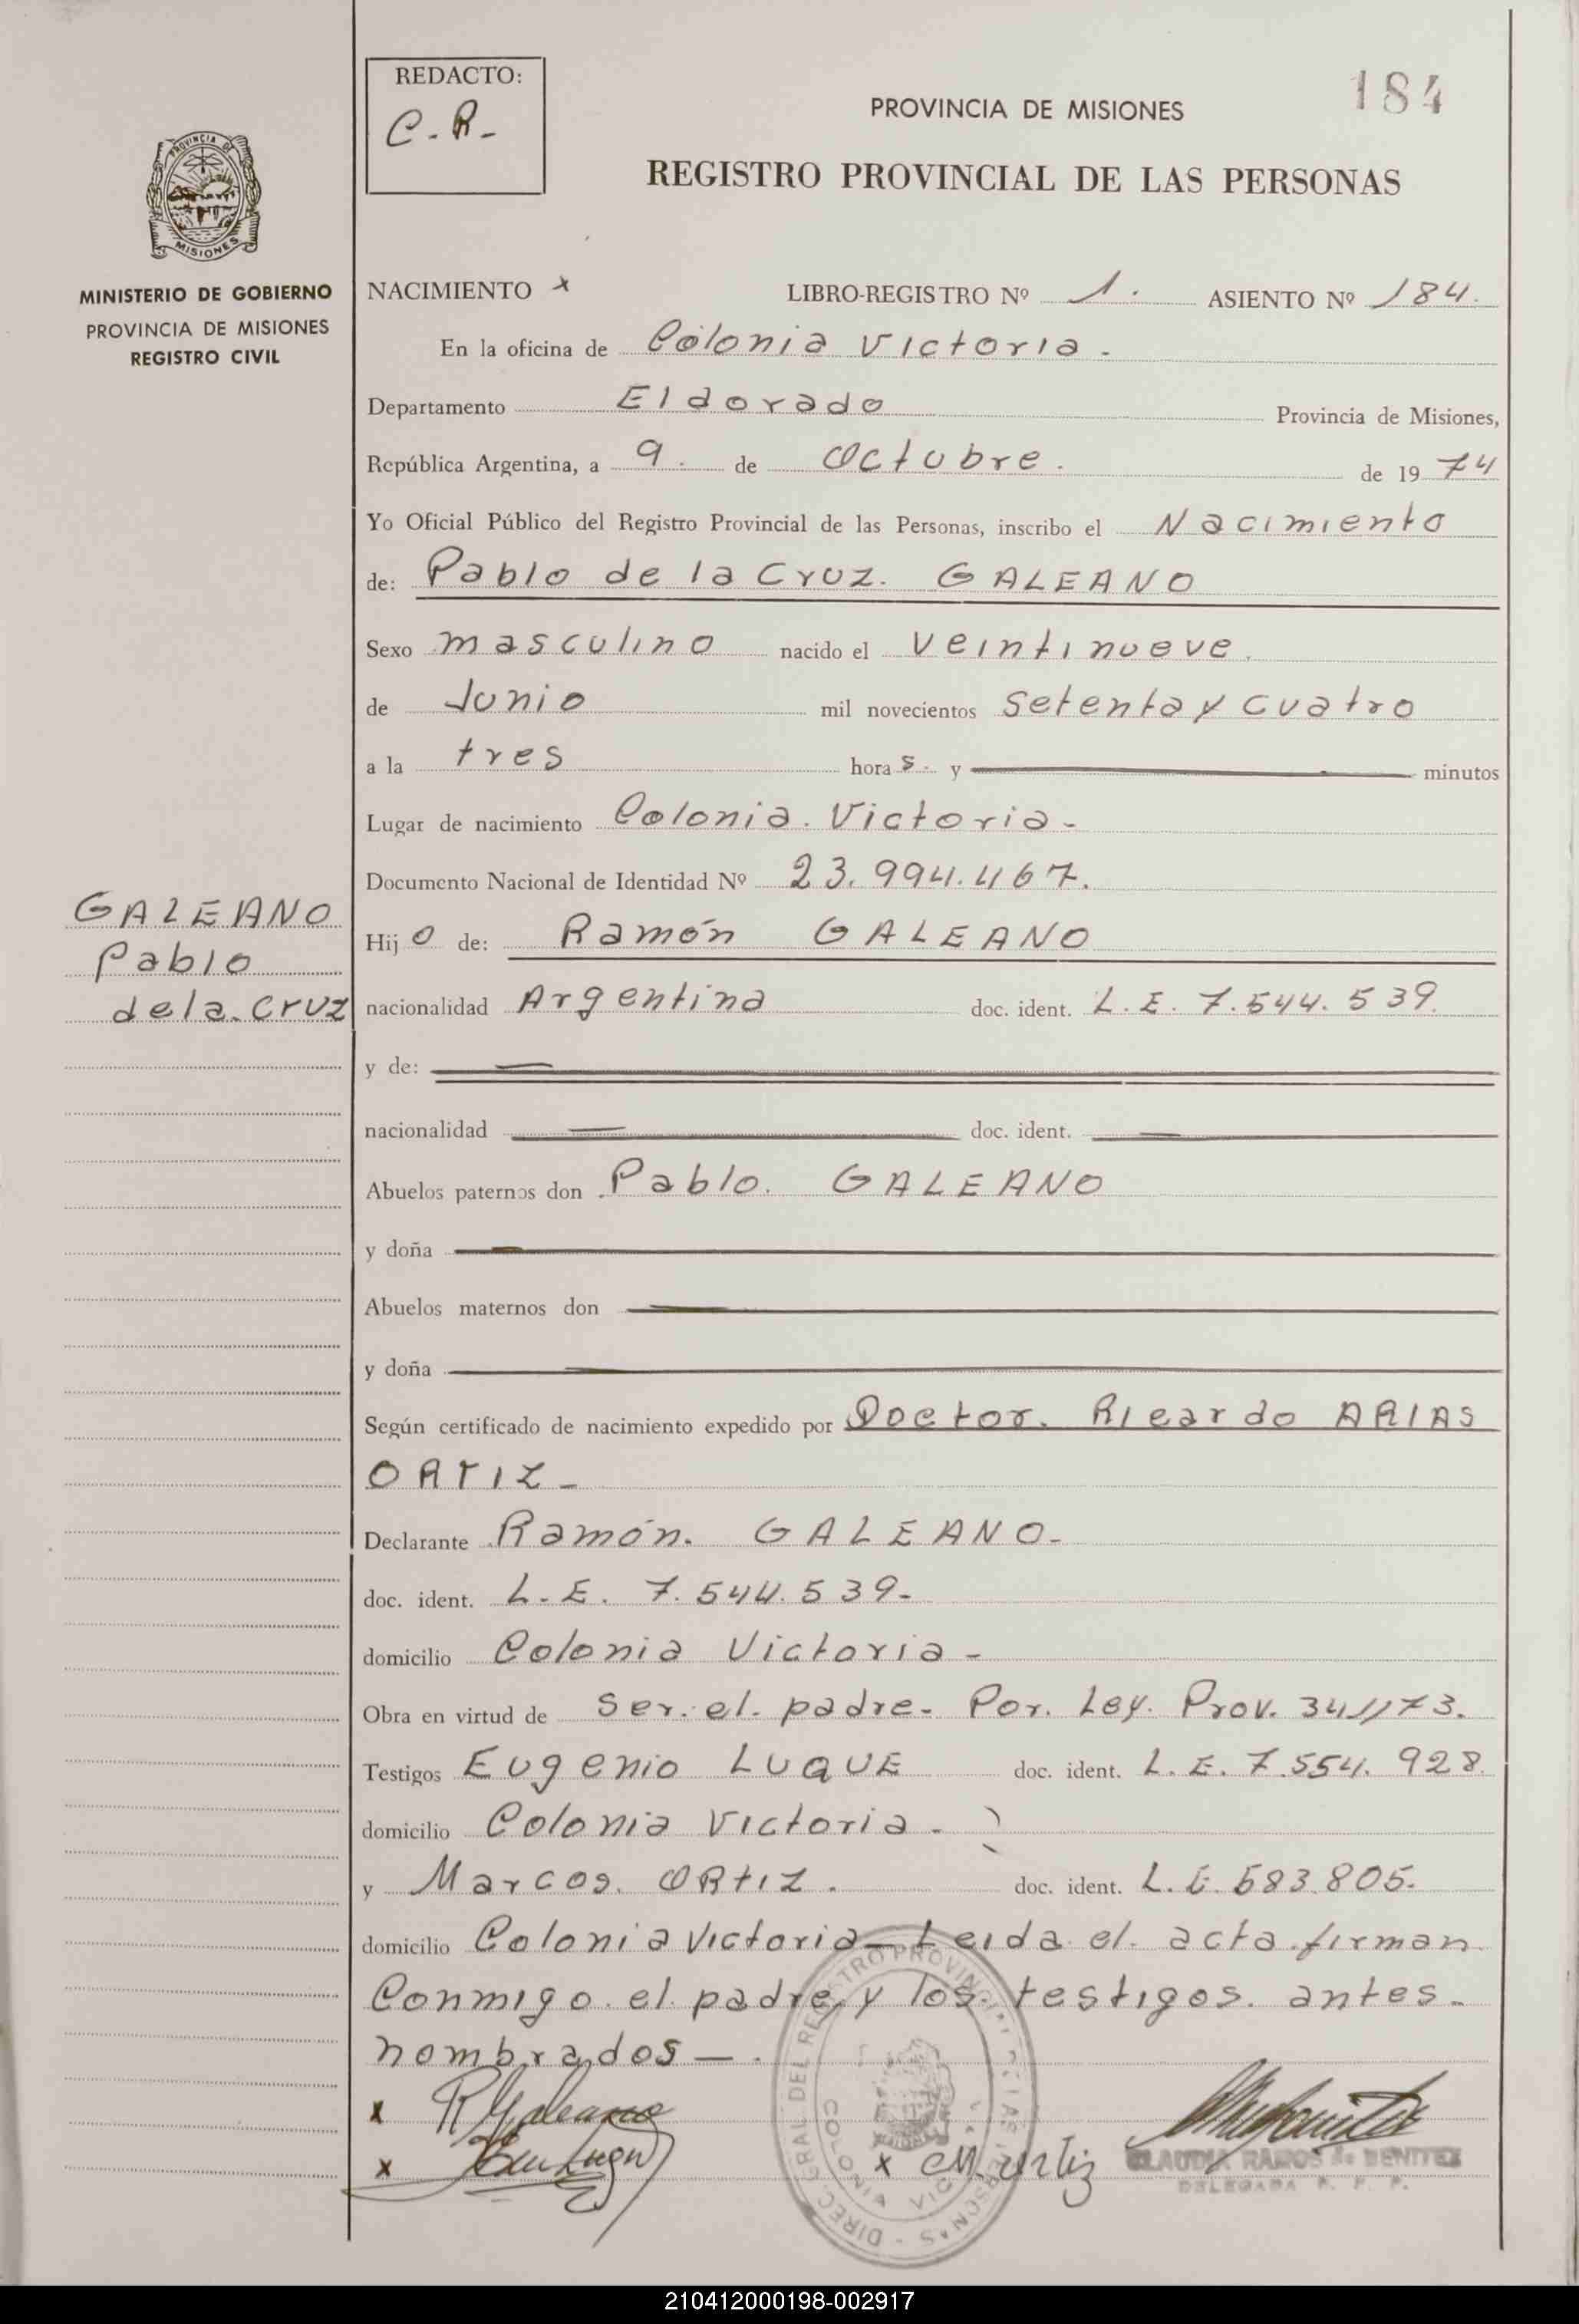 REDACTO:
C.R.-
184
PROVINCIA DE MISIONES
REGISTRO PROVINCIAL DE LAS PERSONAS
PROVINCIA DE
MISIONES
MINISTERIO DE GOBIERNO
PROVINCIA DE MISIONES
REGISTRO CIVIL
NACIMIENTO x LIBRO-REGISTRO Nº 1. ASIENTO Nº 184.
En la oficina de Colonia Victoria.
Departamento Eldorado Provincia de Misiones,
República Argentina, a 9. de Octubre. de 1974
Yo Oficial Público del Registro Provincial de las Personas, inscribo el Nacimiento
de: Pablo de la Cruz. GALEANO
Sexo masculino nacido el veintinueve.
de Junio mil novecientos setenta y cuatro
a la tres hora s. y — minutos
Lugar de nacimiento Colonia. Victoria-
Documento Nacional de Identidad Nº 23.994.467.
GALEANO
Pablo
de la Cruz
Hijo de: Ramón GALEANO
nacionalidad Argentina doc. ident. L.E. 7.544.539.
y de: —
nacionalidad — doc. ident. —
Abuelos paternos don Pablo. GALEANO
y doña —
Abuelos maternos don —
y doña —
Según certificado de nacimiento expedido por Doctor. Ricardo ARIAS
ORTIZ-
Declarante Ramón. GALEANO-
doc. ident. L.E. 7.544.539-
domicilio Colonia Victoria-
Obra en virtud de ser. el. padre- Por. Ley. Prov. 341/73.
Testigos Eugenio LUQUE doc. ident. L.E. 7.554.928.
domicilio Colonia Victoria.
y Marcos. ORTIZ. doc. ident. L.E. 683.805.
domicilio Colonia Victoria— Leida el. acta. firman
Conmigo. el. padre, y los. testigos. antes-
nombrados—.
x R Galeano
x
x M. Ortiz
CLAUDIA RAMOS de BENITEZ
DELEGADA R. P. P.
DIREC. GRAL. DEL REGISTRO PROVINCIAL DE LAS PERSONAS -
COLONIA VICTORIA
210412000198-002917